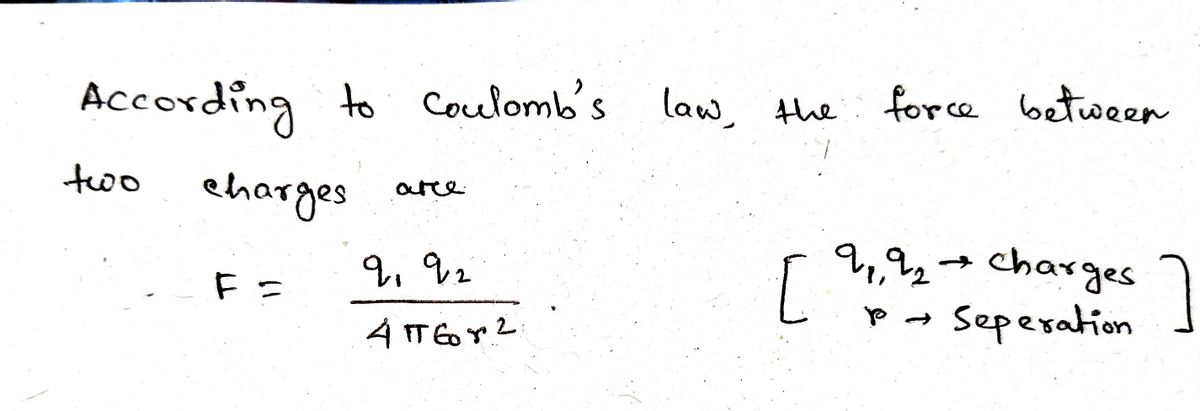 According to Coulomb's law, the force between
two charges are
F = q₁ q₂ / 4πϵ₀r² [ q₁, q₂ → charges
r → Seperation ]